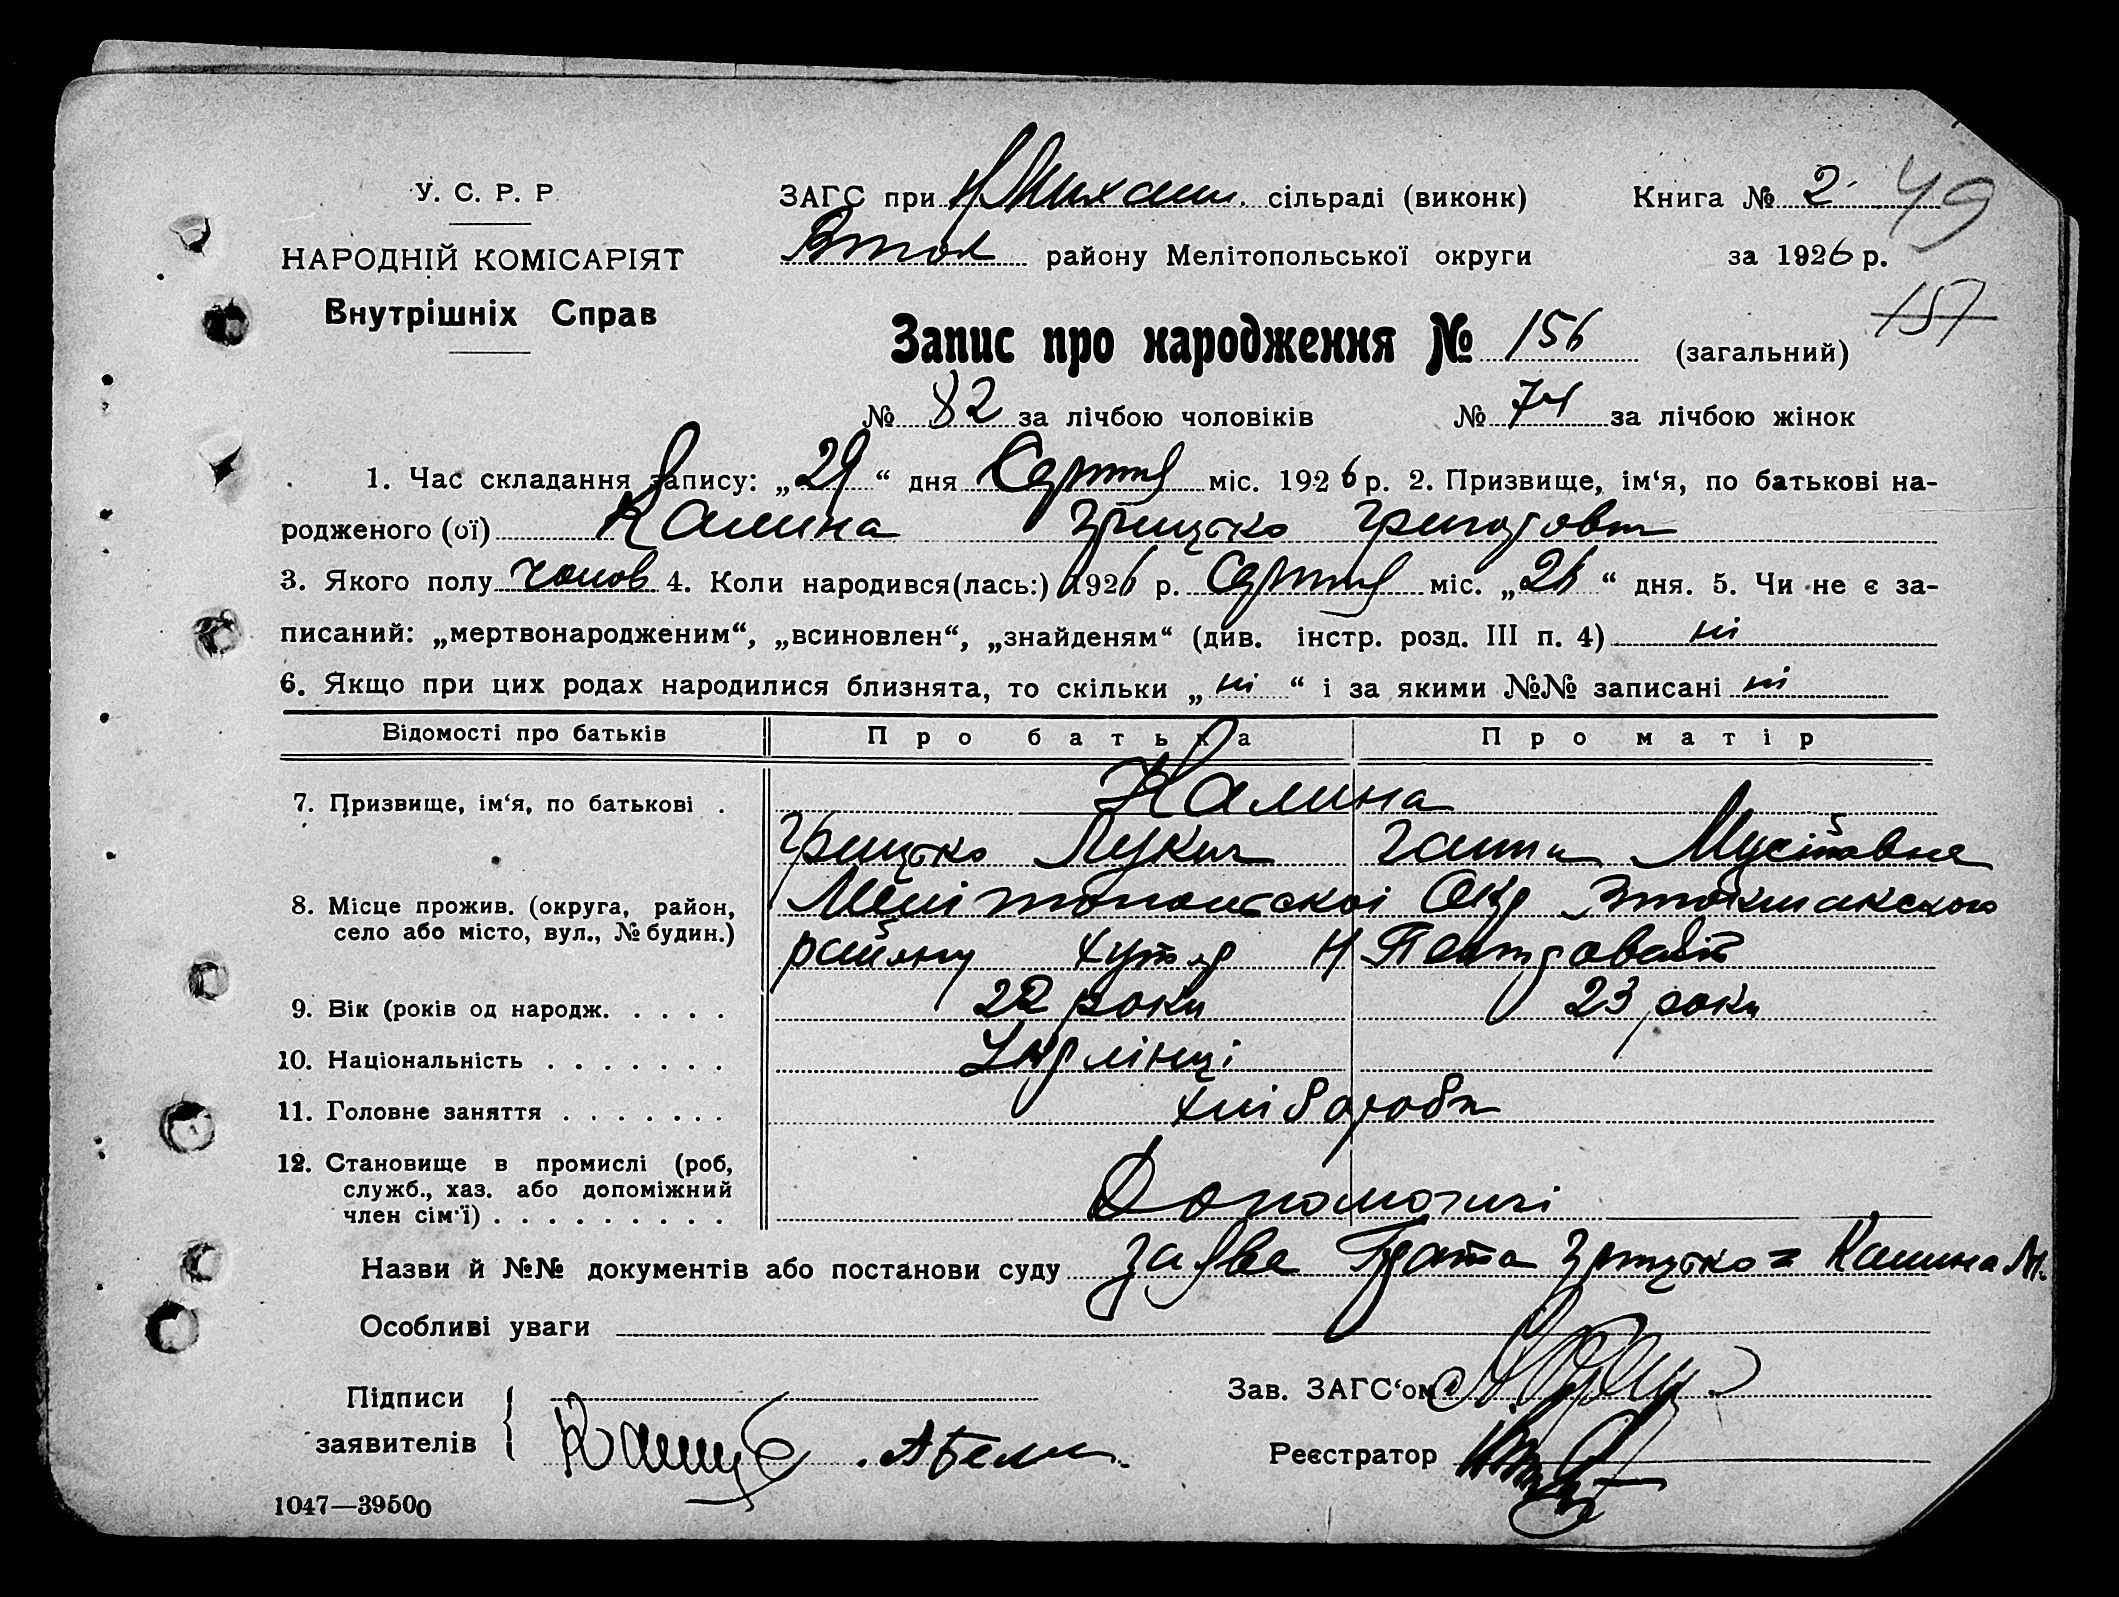 У. С. Р. Р
НАРОДНІЙ КОМІСАРІЯТ
Внутрішніх Справ
ЗАГС при Н Михайл. сільраді (виконк)
Книга № 2 49
Вток району Мелітопольської округи
за 1926 р.
Запис про народження № 156 (загальний) 157
№ 82 за лічбою чоловіків № 74 за лічбою жінок
1. Час складання запису: „29“ дня Серпня міс. 1926 р. 2. Призвище, ім‘я, по батькові на-
родженого (ої) Калина Грицько Григорович
3. Якого полу чолов 4. Коли народився(лась:) 1926 р. Серпня міс. „26“ дня. 5. Чи не є за-
писаний: „мертвонародженим“, „всиновлен“, „знайденям“ (див. інстр. розд. III п. 4) ні
6. Якщо при цих родах народилися близнята, то скільки „ні“ і за якими №№ записані ні
Відомості про батьків Про батька Про матір
7. Призвище, ім‘я, по батькові . Калина
Грицько Лукич Мусіївна
8. Місце прожив. (округа, район, Мелітопольської Окр Втокмакского
село або місто, вул., № будин.) району хутор Н
9. Вік (років од народж. . . . . 22 роки 23 роки
10. Національність . . . . . . . Укрлінці
11. Головне заняття . . . . . . . хліборобн
12. Становище в промислі (роб,
служб., хаз. або допоміжний
член сім‘ї) . . . . . . . . . Допомогичі
Назви й №№ документів або постанови суду заява Грицько Калина
Особливі уваги
Підписи
заявителів
Зав. ЗАГС‘ом
Реєстратор
1047—39500